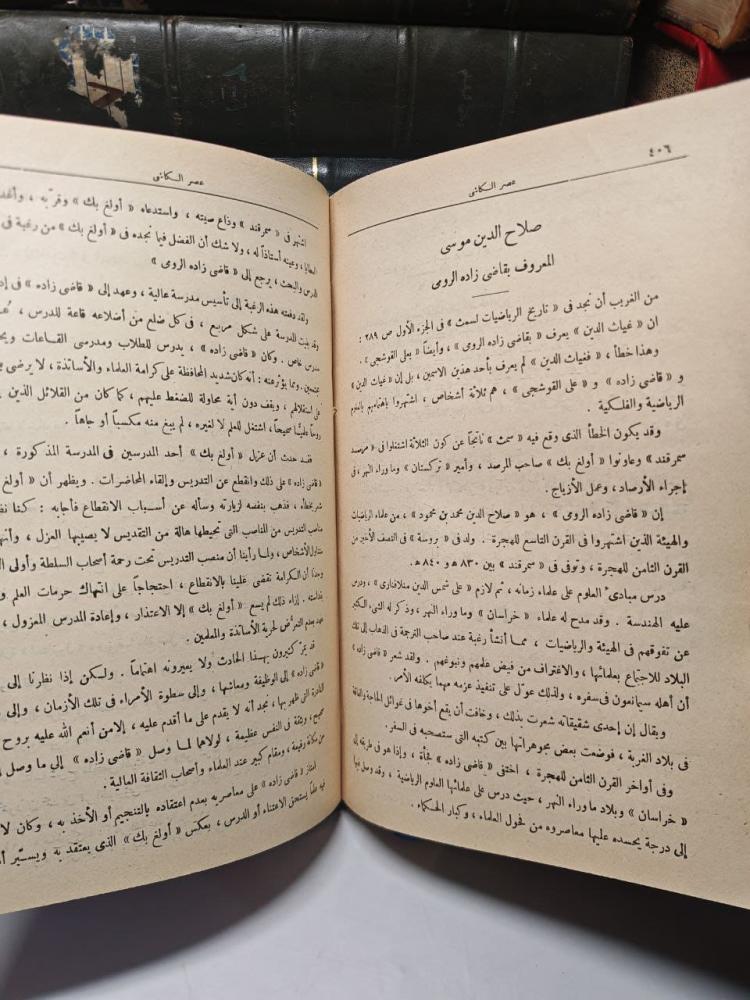 ٤٠٦
عصر السكاشى
صلاح الدين موسى
المعروف بقاضى زاده الرومى
من الغريب أن نجد فى « تاريخ الرياضيات لسمث » فى الجزء الأول ص ٢٨٩ :
ان « غياث الدين » يعرف « بقاضى زاده الرومى » ، وأيضاً « بعلى القوشجى » .
وهذا خطأ ، « فغياث الدين » لم يعرف بأحد هذين الاسمين ، بل إن « غياث الدين »
و « قاضى زاده » و « على القوشجى » ، هم ثلاثة أشخاص ، اشتهروا باهتمامهم بالعلوم
الرياضية والفلكية .
وقد يكون الخطأ الذى وقع فيه « سمث » ناتجاً عن كون الثلاثة اشتغلوا فى « مرصد
سمرقند » وعاونوا « أولغ بك » صاحب المرصد ، وأمير « تركستان » وما وراء النهر ، فى
إجراء الأرصاد ، وعمل الأزياج .
إن « قاضى زاده الرومى » ، هو « صلاح الدين محمد بن محمود » ، من علماء الرياضيات
والهيئة الذين اشتهروا فى القرن التاسع للهجرة . ولد فى « بروسة » فى النصف الأخير من
القرن الثامن للهجرة ، وتوفى فى « سمرقند » بين ٨٣٠ هـ و ٨٤٠ هـ .
درس مبادئ العلوم على علماء زمانه ، ثم لازم « على شمس الدين منلافنارى » ، ودرس
عليه الهندسة . وقد مدح له علماء « خراسان » وما وراء النهر ، وذكر له الشىء الكثير
عن تفوقهم فى الهيئة والرياضيات ، مما أنشأ رغبة عند صاحب الترجمة فى الذهاب إلى تلك
البلاد للاجتماع بعلمائها ، والاغتراف من فيض علمهم ونبوغهم . ولقد شعر « قاضى زاده »
أن أهله سيمانعون فى سفره ، ولذلك عوّل على تنفيذ عزمه مهما يكلفه الأمر .
ويقال إن إحدى شقيقاته شعرت بذلك ، وخافت أن يقع أخوها فى غوائل الحاجة والفاقة
فى بلاد الغربة ، فوضعت بعض مجوهراتها بين كتبه التى ستصحبه فى السفر .
وفى أواخر القرن الثامن للهجرة ، اختفى « قاضى زاده » فجأة ، وإذا هو فى طريقه إلى
« خراسان » وبلاد ما وراء النهر ، حيث درس على علمائها العلوم الرياضية ، وقد وصل فيها
إلى درجة يحسده عليها معاصروه من فحول العلماء ، وكبار الحكماء .
عصر السكاشى
اشتهر فى « سمرقند » وذاع صيته ، واستدعاه « أولغ بك » وقرّبه ،
العطايا ، وعينه أستاذاً له ، ولا شك أن الفضل فيما نجده فى « أولغ بك » من رغبة فى
الدرس والبحث ، يرجع إلى « قاضى زاده الرومى »
ولقد دفعته هذه الرغبة إلى تأسيس مدرسة عالية ، وعهد إلى « قاضى زاده » فى
وقد بنيت المدرسة على شكل مربع ، فى كل ضلع من أضلاعه قاعة للدرس ،
مدرس خاص . وكان « قاضى زاده » ، يدرس للطلاب ومدرسى القاعات
مجتمعين . ومما يؤثر عنه : أنه كان شديد المحافظة على كرامة العلماء والأساتذة ، لا يرضى
على استقلالهم ، ويقف دون أية محاولة للضغط عليهم ، كما كان من القلائل الذين
روحاً علمياً صحيحاً ، اشتغل للعلم لا لغيره ، لم يبغ منه مكسباً أو جاهاً .
فقد حدث أن عزل « أولغ بك » أحد المدرسين فى المدرسة المذكورة ،
« قاضى زاده » على ذلك وانقطع عن التدريس وإلقاء المحاضرات . ويظهر أن « أولغ
شعر بخطأه ، فذهب بنفسه لزيارته وسأله عن أسباب الانقطاع فأجابه : كنا
مناصب التدريس من المناصب التى تحيطها هالة من التقديس لا يصيبها العزل ،
متناول الأشخاص ، ولما رأينا أن منصب التدريس تحت رحمة أصحاب السلطة وأولى
وجدنا أن الكرامة تقضى علينا بالانقطاع ، احتجاجاً على انتهاك حرمات العلم
بقداسته . إزاء ذلك لم يسع « أولغ بك » إلا الاعتذار ، وإعادة المدرس المعزول ،
عهد بعدم التعرض لحرية الأساتذة والمعلمين .
قد يمرّ كثيرون بهذا الحادث ولا يعيرونه اهتماماً . ولكن إذا نظرنا إلى
« قاضى زاده » إلى الوظيفة ومعاشها ، وإلى سطوة الأمراء فى تلك الأزمان ، وإلى
النادرة التى ظهر بها ، نجد أنه لا يقدم على ما أقدم عليه ، إلا من أنعم الله عليه بروح
صحيح ، وثقة فى النفس عظيمة ، لولاهما لما وصل « قاضى زاده » إلى ما وصل
من مكانة رفيعة ، ومقام كبير عند العلماء وأصحاب الثقافة العالية .
امتاز « قاضى زاده » على معاصريه بعدم اعتقاده بالتنجيم أو الأخذ به ، وكان لا
فيه علماً يستحق الاعتناء أو الدرس ، بعكس « أولغ بك » الذى يعتقد به ويسيّر